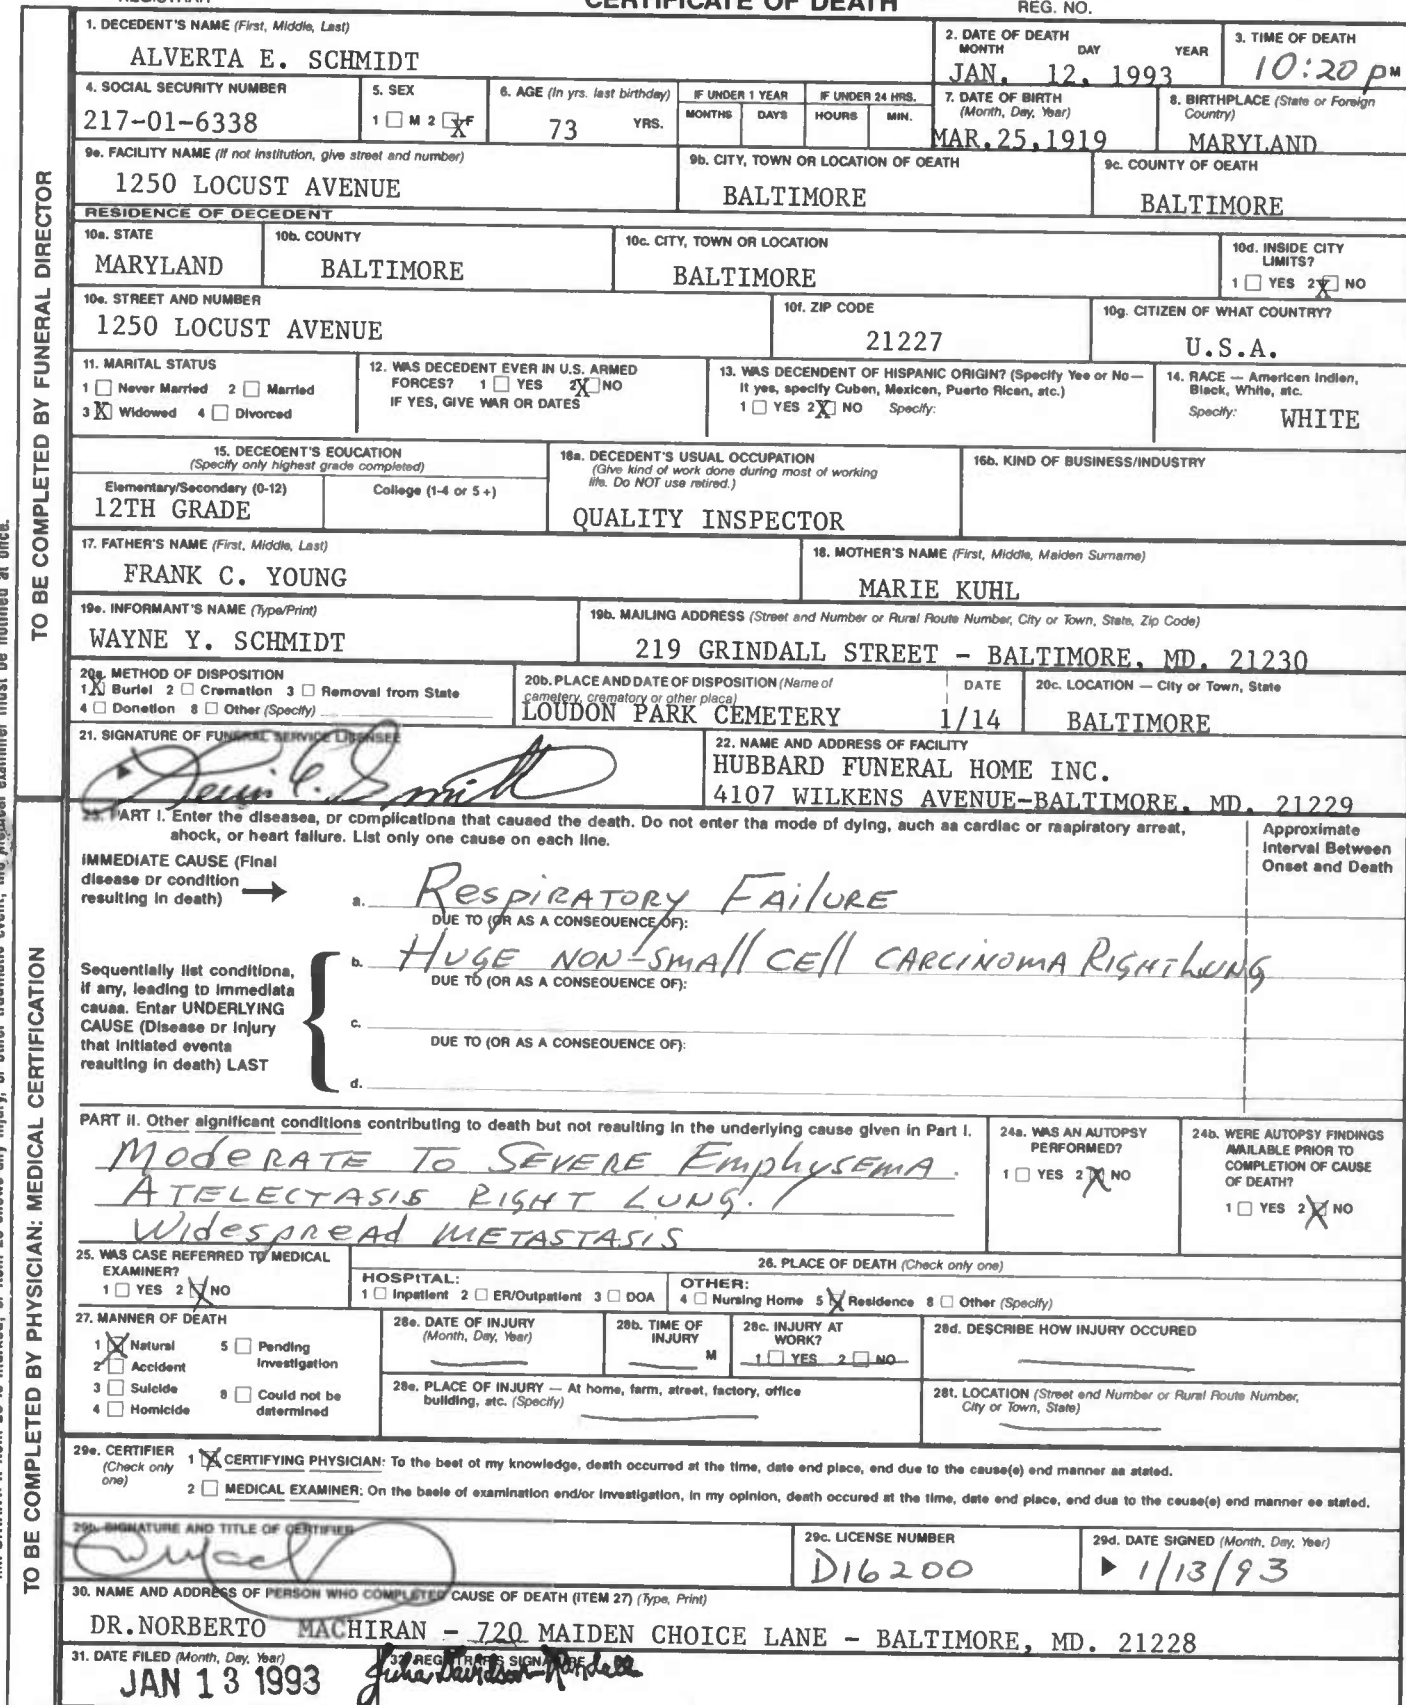 CERTIFICATE OF DEATH
REG. NO.
1. DECEDENT'S NAME (First, Middle, Last)
ALVERTA E. SCHMIDT
2. DATE OF DEATH
MONTH DAY YEAR
JAN. 12, 1993
3. TIME OF DEATH
10:20 PM
4. SOCIAL SECURITY NUMBER
217-01-6338
5. SEX
1 M 2 X F
6. AGE (In yrs. last birthday)
73 YRS.
IF UNDER 1 YEAR
MONTHS DAYS
IF UNDER 24 HRS.
HOURS MIN.
7. DATE OF BIRTH
(Month, Day, Year)
MAR.25,1919
8. BIRTHPLACE (State or Foreign
Country)
MARYLAND
9e. FACILITY NAME (If not institution, give street and number)
1250 LOCUST AVENUE
9b. CITY, TOWN OR LOCATION OF DEATH
BALTIMORE
9c. COUNTY OF DEATH
BALTIMORE
RESIDENCE OF DECEDENT
10a. STATE
MARYLAND
10b. COUNTY
BALTIMORE
10c. CITY, TOWN OR LOCATION
BALTIMORE
10d. INSIDE CITY
LIMITS?
1 YES 2 X NO
10e. STREET AND NUMBER
1250 LOCUST AVENUE
10f. ZIP CODE
21227
10g. CITIZEN OF WHAT COUNTRY?
U.S.A.
11. MARITAL STATUS
1 Never Married 2 Married
3 X Widowed 4 Divorced
12. WAS DECEDENT EVER IN U.S. ARMED
FORCES? 1 YES 2 X NO
IF YES, GIVE WAR OR DATES
13. WAS DECENDENT OF HISPANIC ORIGIN? (Specify Yes or No—
It yes, specify Cuban, Mexican, Puerto Rican, etc.)
1 YES 2 X NO Specify:
14. RACE — American Indian,
Black, White, etc.
Specify: WHITE
15. DECEDENT'S EDUCATION
(Specify only highest grade completed)
Elementary/Secondary (0-12) College (1-4 or 5+)
12TH GRADE
16a. DECEDENT'S USUAL OCCUPATION
(Give kind of work done during most of working
life. Do NOT use retired.)
QUALITY INSPECTOR
16b. KIND OF BUSINESS/INDUSTRY
17. FATHER'S NAME (First, Middle, Last)
FRANK C. YOUNG
18. MOTHER'S NAME (First, Middle, Maiden Surname)
MARIE KUHL
19e. INFORMANT'S NAME (Type/Print)
WAYNE Y. SCHMIDT
19b. MAILING ADDRESS (Street and Number or Rural Route Number, City or Town, State, Zip Code)
219 GRINDALL STREET - BALTIMORE, MD. 21230
20a. METHOD OF DISPOSITION
1 X Burial 2 Cremation 3 Removal from State
4 Donation 8 Other (Specify)
20b. PLACE AND DATE OF DISPOSITION (Name of
cemetery, crematory or other place)
LOUDON PARK CEMETERY
DATE
1/14
20c. LOCATION — City or Town, State
BALTIMORE
21. SIGNATURE OF FUNERAL SERVICE LICENSEE
22. NAME AND ADDRESS OF FACILITY
HUBBARD FUNERAL HOME INC.
4107 WILKENS AVENUE-BALTIMORE, MD. 21229
TO BE COMPLETED BY FUNERAL DIRECTOR
23. PART I. Enter the diseases, or complications that caused the death. Do not enter the mode of dying, such as cardiac or respiratory arrest,
shock, or heart failure. List only one cause on each line.
Approximate
Interval Between
Onset and Death
IMMEDIATE CAUSE (Final
disease or condition
resulting in death)
a. RESPIRATORY FAILURE
DUE TO (OR AS A CONSEQUENCE OF):
b. HUGE NON-SMALL CELL CARCINOMA RIGHT LUNG
DUE TO (OR AS A CONSEQUENCE OF):
Sequentially list conditions,
if any, leading to immediate
cause. Enter UNDERLYING
CAUSE (Disease or injury
that initiated events
resulting in death) LAST
c.
DUE TO (OR AS A CONSEQUENCE OF):
d.
PART II. Other significant conditions contributing to death but not resulting in the underlying cause given in Part I.
MODERATE TO SEVERE EMPHYSEMA.
ATELECTASIS RIGHT LUNG.
WIDESPREAD METASTASIS
24a. WAS AN AUTOPSY
PERFORMED?
1 YES 2 X NO
24b. WERE AUTOPSY FINDINGS
AVAILABLE PRIOR TO
COMPLETION OF CAUSE
OF DEATH?
1 YES 2 X NO
25. WAS CASE REFERRED TO MEDICAL
EXAMINER?
1 YES 2 X NO
26. PLACE OF DEATH (Check only one)
HOSPITAL:
1 Inpatient 2 ER/Outpatient 3 DOA
OTHER:
4 Nursing Home 5 X Residence 8 Other (Specify)
27. MANNER OF DEATH
1 X Natural 5 Pending
2 Accident Investigation
3 Suicide 8 Could not be
4 Homicide determined
28a. DATE OF INJURY
(Month, Day, Year)
28b. TIME OF
INJURY
M
28c. INJURY AT
WORK?
1 YES 2 NO
28d. DESCRIBE HOW INJURY OCCURED
28e. PLACE OF INJURY — At home, farm, street, factory, office
building, etc. (Specify)
28f. LOCATION (Street and Number or Rural Route Number,
City or Town, State)
29e. CERTIFIER
(Check only
one)
1 X CERTIFYING PHYSICIAN: To the best of my knowledge, death occurred at the time, date end place, end due to the cause(s) end manner as stated.
2 MEDICAL EXAMINER: On the basis of examination end/or investigation, in my opinion, death occured at the time, date end place, end due to the cause(s) end manner as stated.
29b. SIGNATURE AND TITLE OF CERTIFIER
29c. LICENSE NUMBER
D16200
29d. DATE SIGNED (Month, Day, Year)
1/13/93
30. NAME AND ADDRESS OF PERSON WHO COMPLETED CAUSE OF DEATH (ITEM 27) (Type, Print)
DR.NORBERTO MACHIRAN - 720 MAIDEN CHOICE LANE - BALTIMORE, MD. 21228
31. DATE FILED (Month, Day, Year)
JAN 13 1993
32. REGISTRAR'S SIGNATURE
Julia Davidson-Randall
TO BE COMPLETED BY PHYSICIAN: MEDICAL CERTIFICATION